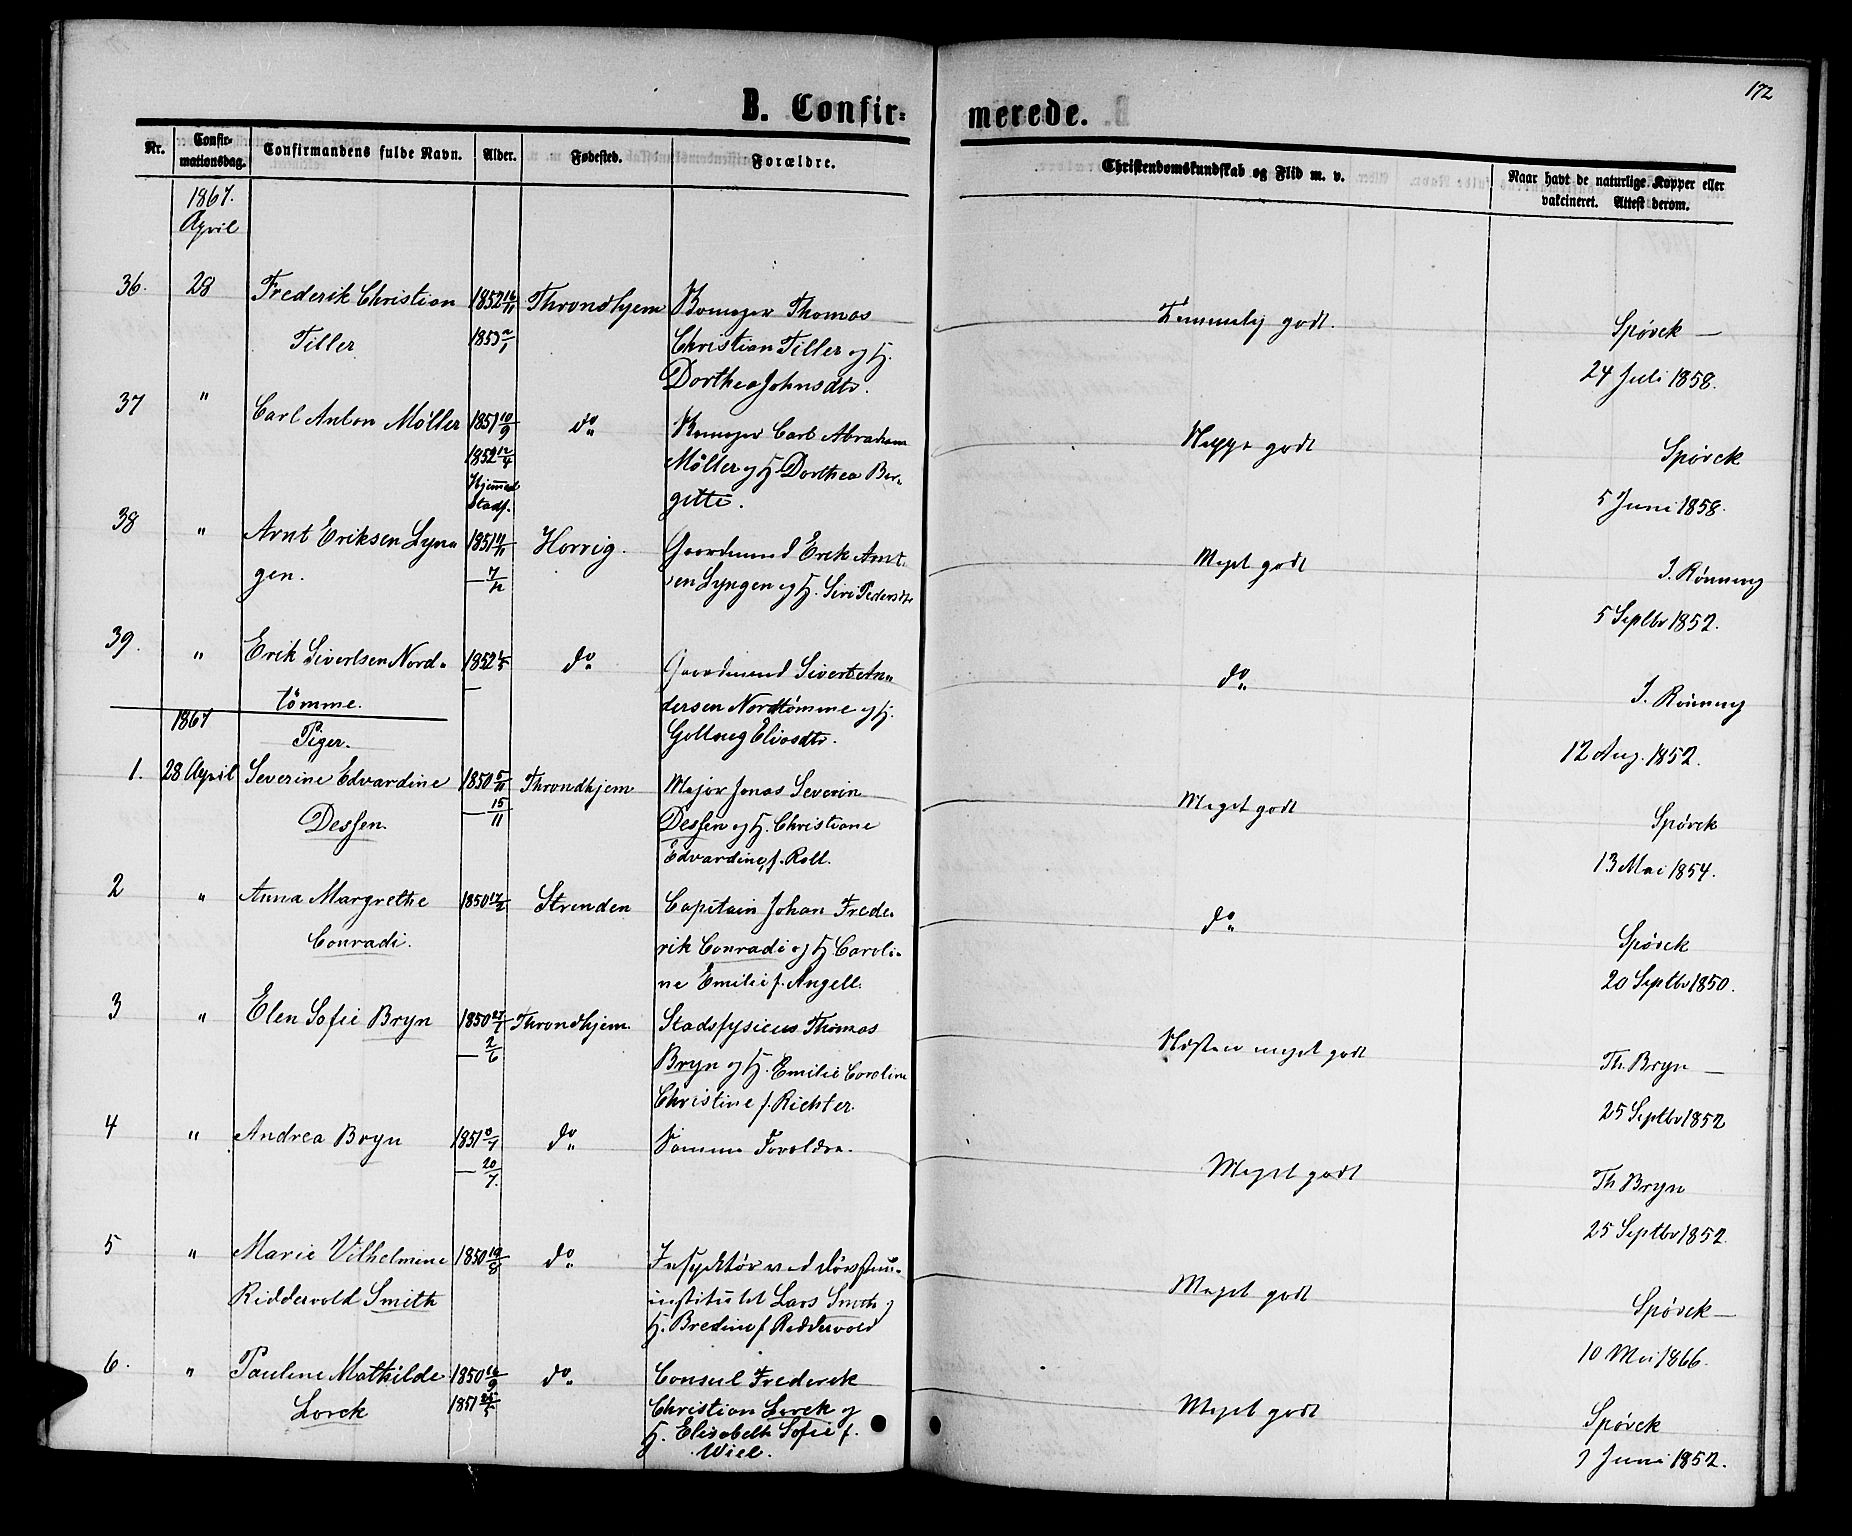 172
B. Confirmerede.
Nr. Confirmationsdag. Confirmandens fulde Navn. Alder. Fødested. Forældre. Christendomskundskab og Flid m. v. Naar havt de naturlige Kopper eller vakcineret. Attest derom.
1867.
April
36. 28 Frederik Christian 1852 16/11 Throndhjem Thomas Temmelig godt. Spörck
Tiller 1853 2/1 Christian Tiller og H. 24 Juli 1858.
Dorthea Johnsdtr.
37 " Carl Anton Möller 1851 10/9 do Carl Abraham godt Spörck
1852 12/4 Möller og H. Dorthea Ber-
Hjemmed. gitte. 5 Juni 1858.
Stadf.
38 " Arnt Eriksen Lyn- 1851 Horrig. Gaardmand Erik Arnt- Meget godt J. Rönning
gen. sen Lyngen og H. Siri Pedersdtr 5 Septbr 1852.
39. " Erik Sivertsen Nord- 1852 do Gaardmand Sivert An- do J. Rönning
tömme. dersen Nordtömme og H. 12 Aug. 1852.
Eliasdtr.
1867
Piger.
1. 28 April Severine Edvardine 1850 5/11 Throndhjem Major Jonas Severin Meget godt Spörck
Dessen. — 15/11 Dessen og H. Christiane
Edvardine, f. Roll. 13 Mai 1854.
2 " Anna Margrethe 1850 17/2 Strinden Capitain Johan Frede- do Spörck
Conradi. rik Conradi og H Caroli- 20 Septbr 1850.
ne Emilie f. Angell.
3 " Elen Sofie Bryn 1850 Throndhjem. Stadsfysicus Thomas Næsten meget godt Th. Bryn
— 2/6 Bryn og H. Emilie Caroline
Christine f. Richter. 25 Septbr 1852
4 " Andrea Bryn 1851 do Samme Forældre. Meget godt Th Bryn
— 20/7. 25 Septbr 1852.
5 " Marie Vilhelmine 1850 19/8 do Inspektör ved Dövstum- Meget godt Spörck
Riddervold Smith institutet Lars Smith og
H. Bredine f Riddervold 10 Mai 1866.
6. " Pauline Mathilde 1850 16/9 do Consul Frederik Meget godt Spörck
Lorck 1851 Christian Lorck og
H. Elisabeth Sofie f. Juni 1852.
Wiel.